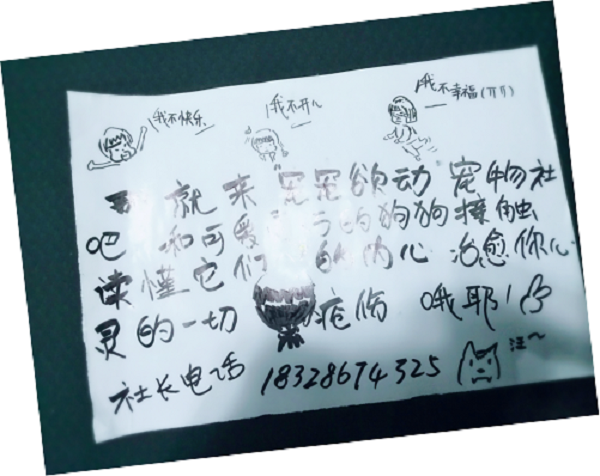 我不快乐
我不开心
我不幸福(TT)
那就来宠宠欲动 宠物社
吧 和可爱 的狗狗接触
读懂它们 的内心 治愈你心
灵的一切 疮伤 哦耶!
社长电话 18328674325 汪~